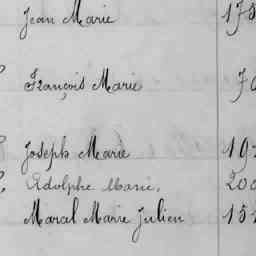 Jean Marie 175
François Marie 70
Joseph Marie 197
Adolphe Marie, 200
Marcal Marie Julien 151